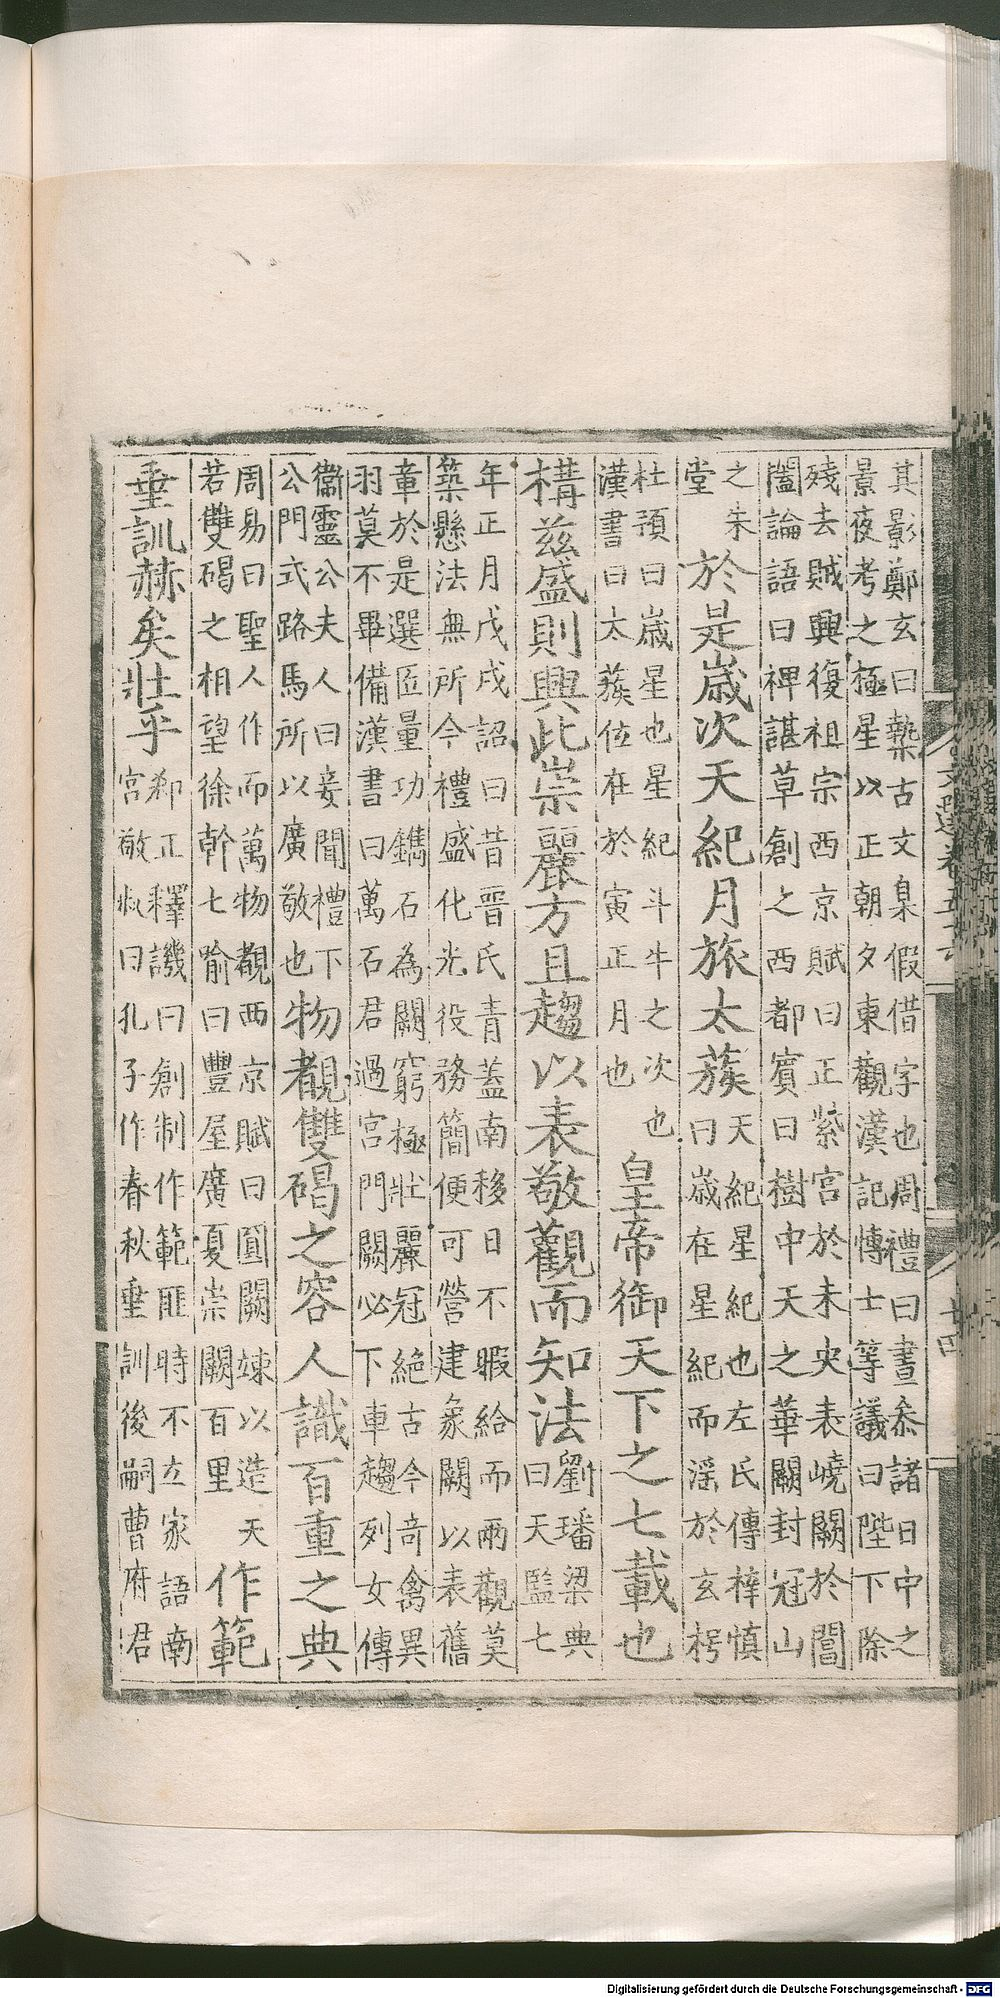 文選卷五十六
十四
其影鄭玄曰槷古文臬假借字也周禮曰晝叅諸日中之
景夜考之極星以正朝夕東觀漢記博士等議曰陛下除
殘去賊興復祖宗西京賦曰正紫宮於未央表嶢闕於閶
闔論語曰裨諶草創之西都賓曰樹中天之華闕封冠山
之朱
堂
於是歲次天紀月旅太蔟
天紀星紀也左氏傳梓慎
曰歲在星紀而滛於玄枵
杜預曰歲星也星紀斗牛之次也
漢書曰太蔟位在於寅正月也
皇帝御天下之七載也
構兹盛則興此崇麗方且趨以表敬觀而知法
劉璠梁典
曰天監七
年正月戊戌詔曰昔晉氏青蓋南移日不暇給而兩觀莫
築懸法無所今禮盛化光役務簡便可營建象闕以表舊
章於是選匠量功鐫石為闕窮極壯麗冠絕古今奇禽異
羽莫不畢備漢書曰萬石君過宮門闕必下車趨列女傳
衞靈公夫人曰妾聞禮下
公門式路馬所以廣敬也
物覩雙碣之容人識百重之典
周易曰聖人作而萬物覩西京賦曰圓闕竦以造天
若雙碣之相望徐幹七喻曰豐屋廣夏崇闕百里
作範
垂訓赫矣壯乎
郄正釋譏曰創制作範匪時不立家語南
宮敬叔曰孔子作春秋垂訓後嗣曹府君
Digitalisierung gefördert durch die Deutsche Forschungsgemeinschaft - DFG